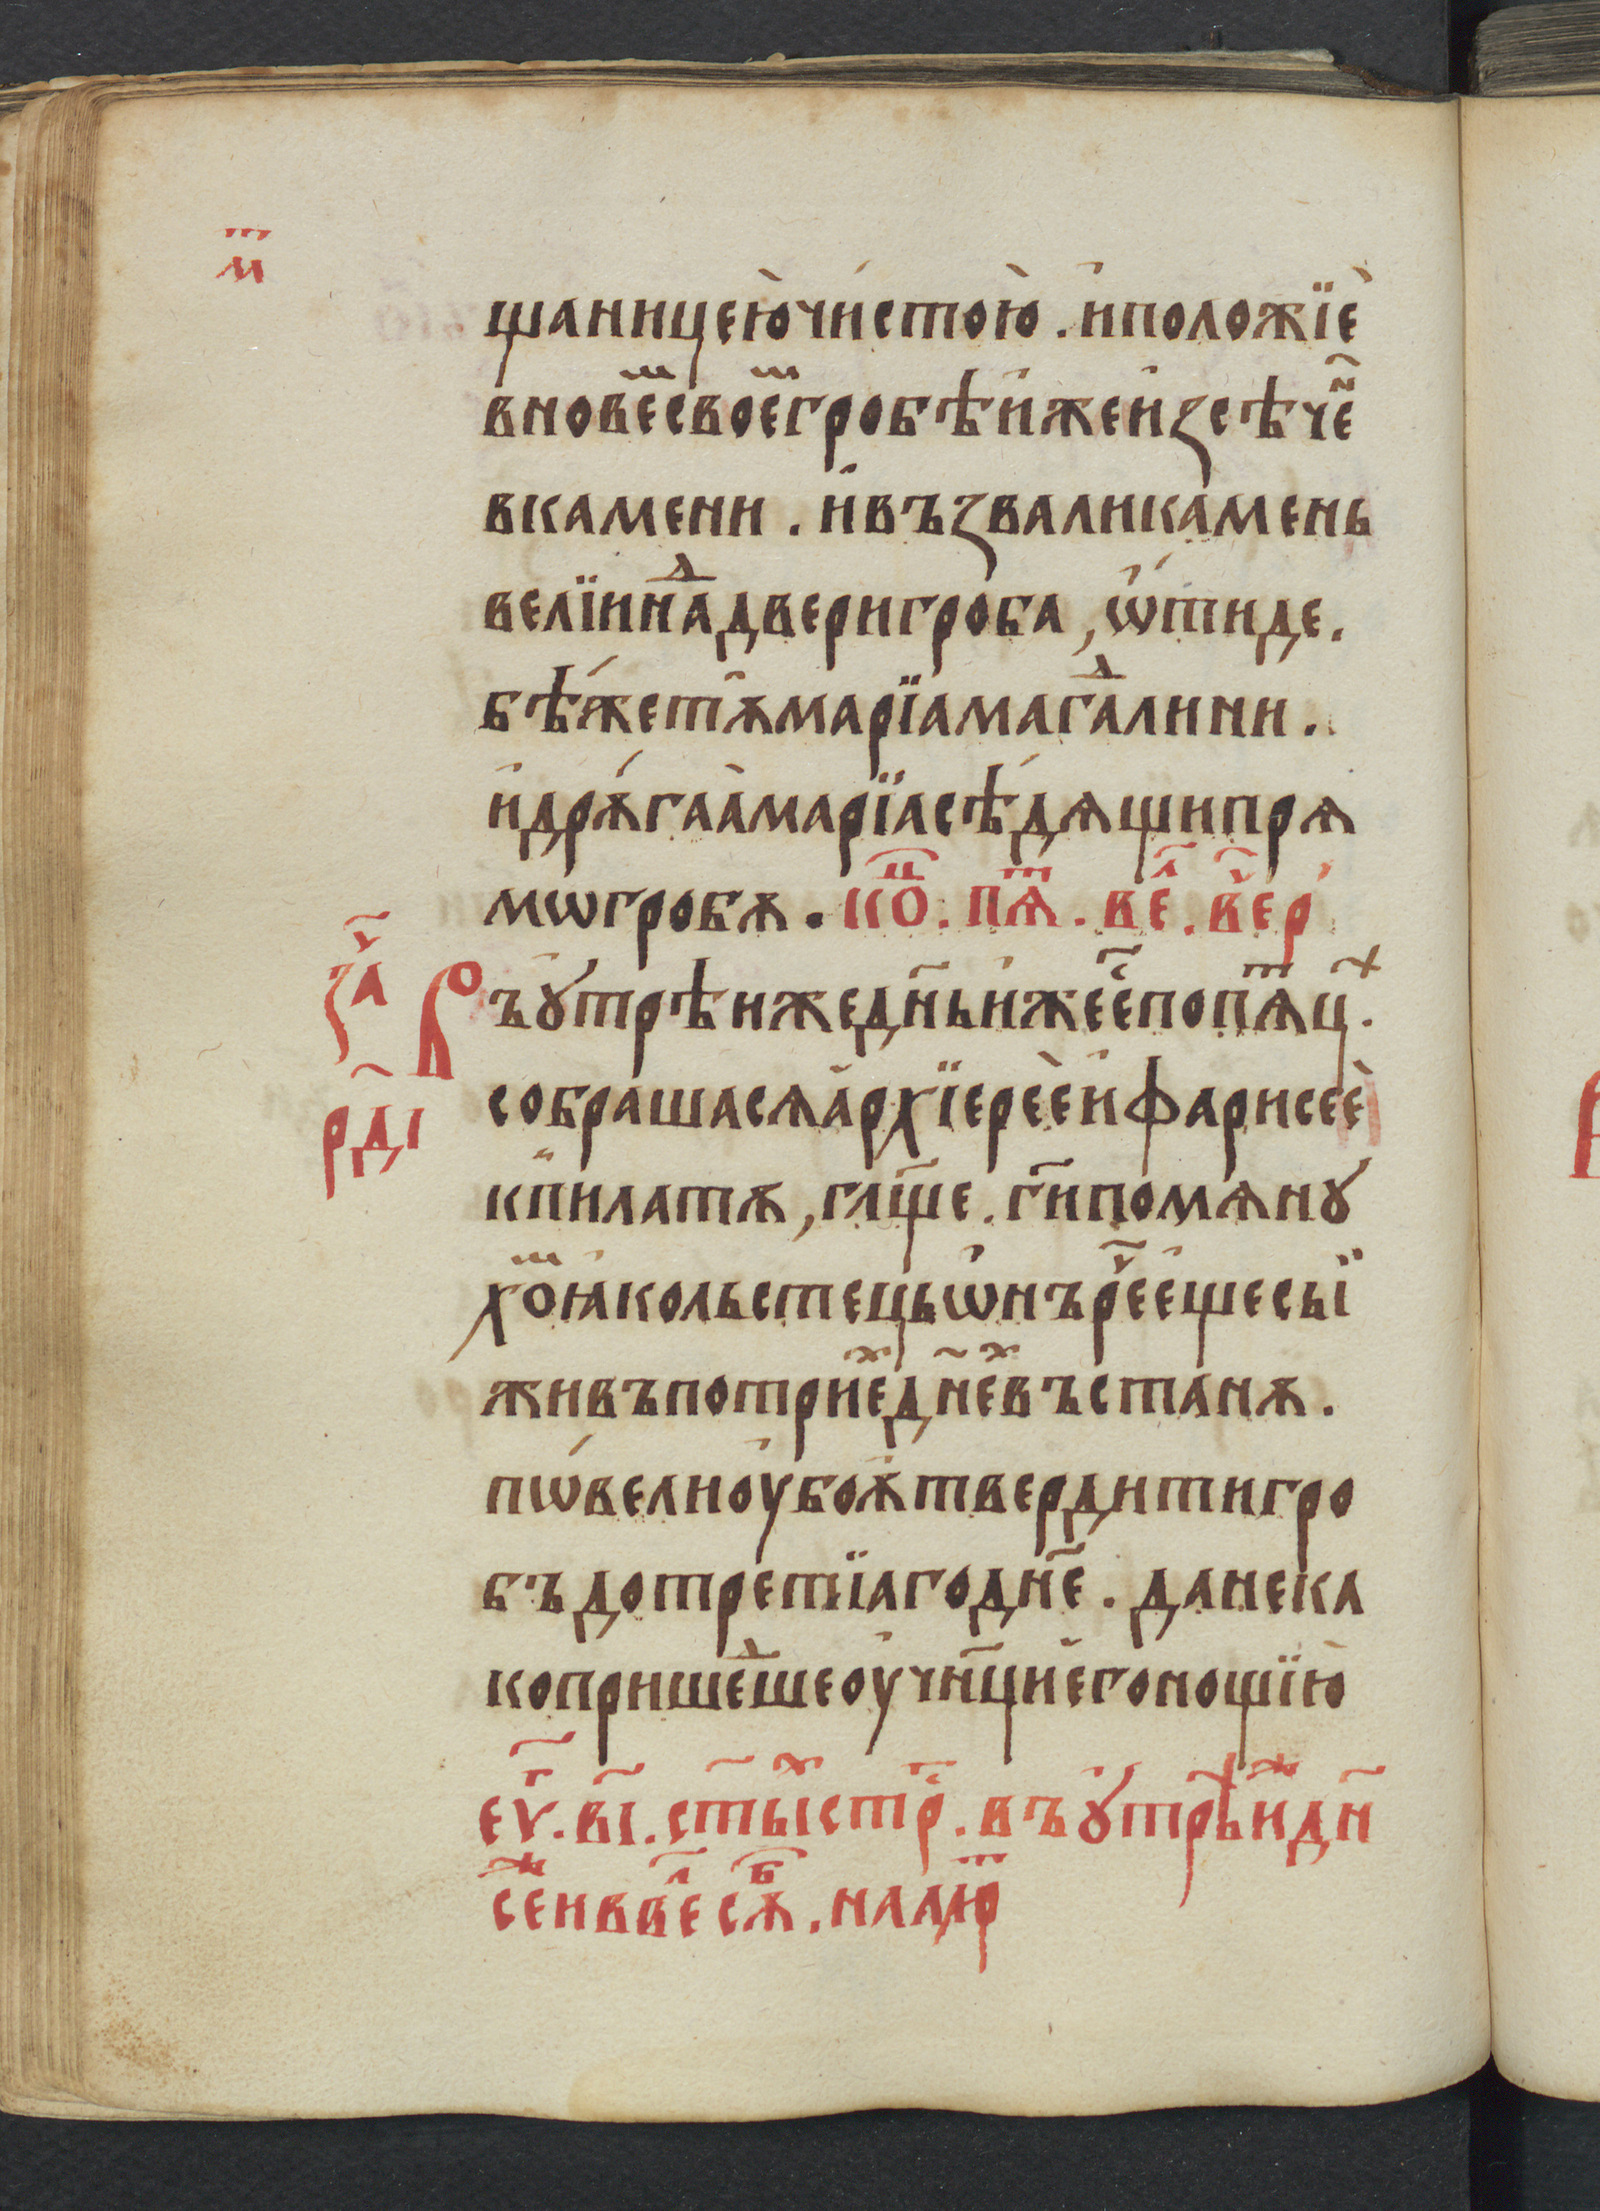 м҃
щаницею̀ чи́стою̀ . и҆ положѝ е
в новѣⷨ е своеⷨ гробѣ и҆же и҆зсѣчеⷩ҇
в камени . и҆ възвали камень
велїи наⷣ двери гроба , ѿиде .
бѣ́ же тꙋ марїа магаⷣлини .
и҆ дрꙋ́гаа̀ марїа сѣдѧщи прѧ
мѡ гробꙋ . коⷰ҇ . пѧⷦ҇ . веⷧ҇ . вⷱ҇ер
за҃ч
Въ ꙋ҆трѣи же дн҃ь и҆же еⷭ҇ по пѧⷦ҇цⷯ .
собрашасѧ а҆рхїерѐе и҆ фарисеѐ
рді҃
к пилатꙋ , гл҃ще . гн҃и помѧнꙋ
хоⷨ ꙗ҆ко льстець ѡ҆нъ реⷱ҇ еще сыи̑
живъ по трⷯиехъ днеⷯ въстанꙋ .
пѡ́вели оу҆бо ꙋ҆твердити гро
бъ до третїаго дн҃е . да не ка
ко пришеⷣше оу҆чн҃ци е҆го нощїю̀
еѵⷢ҇ . в҃і . ст҃ыⷯ стрⷭ҇ . въ ꙋ҆трѣиⷤ дн҃
сеⷤ и в веⷧ҇ сꙋⷠ҇ . на лиⷮр